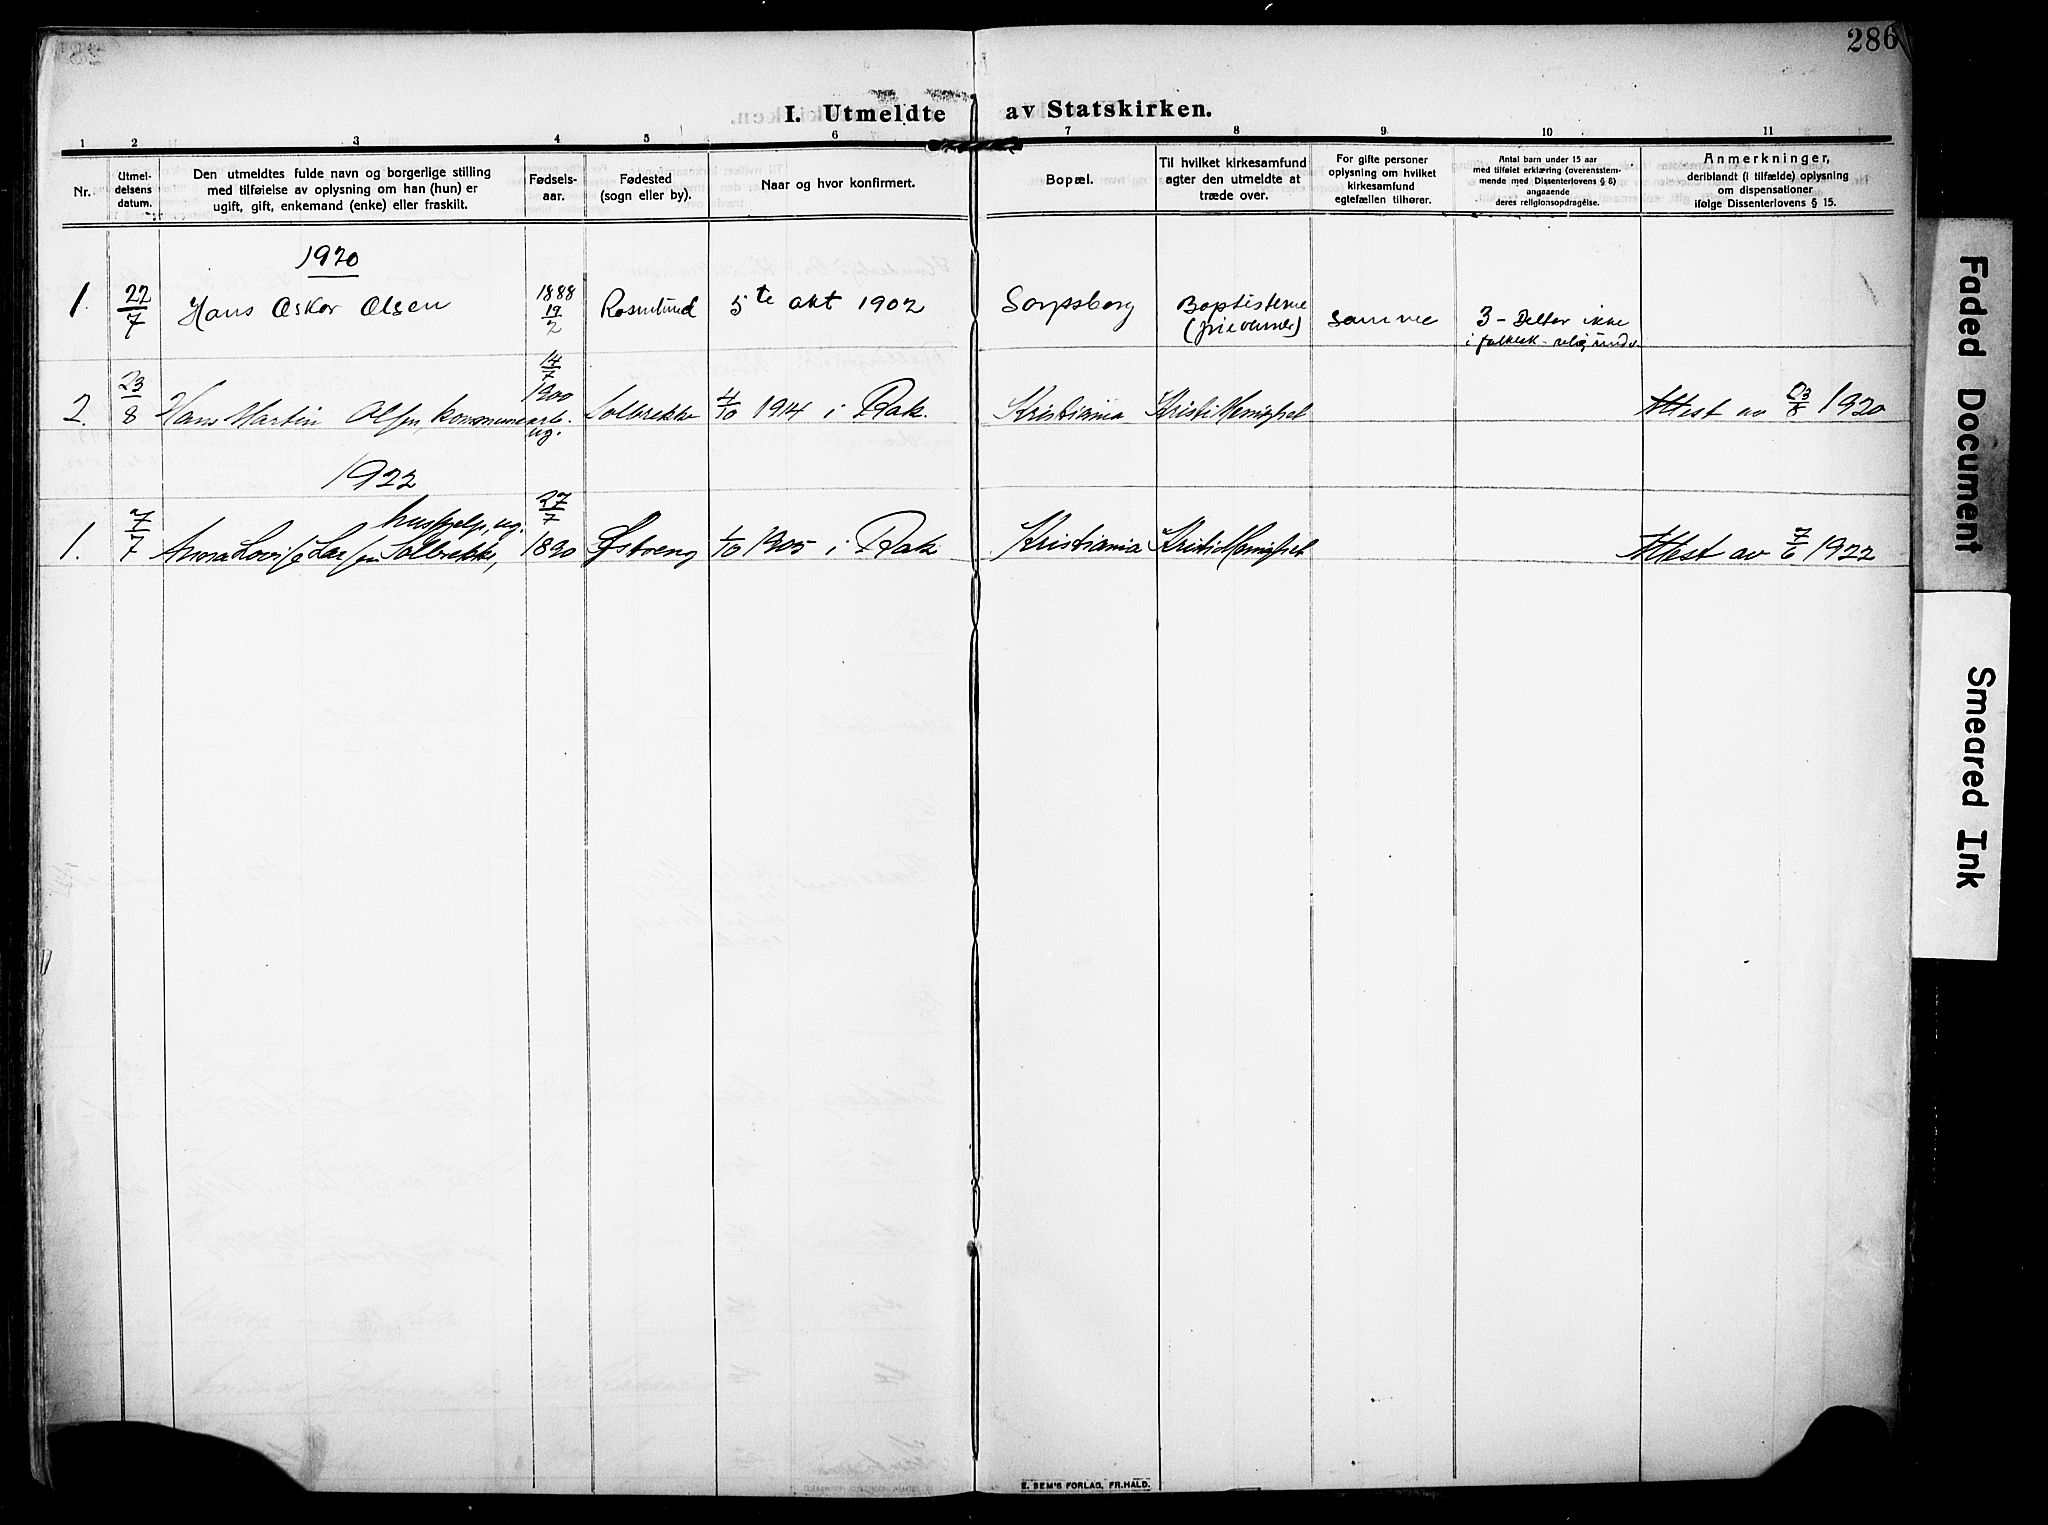 286
I. Utmeldte av Statskirken.
1 2 3 4 5 6 7 8 9 10 11
Nr.
Utmel-
delsens
datum.
Den utmeldtes fulde navn og borgerlige stilling
med tilføielse av oplysning om han (hun) er
ugift, gift, enkemand (enke) eller fraskilt.
Fødsels-
aar.
Fødested
(sogn eller by).
Naar og hvor konfirmert.
Bopæl.
Til hvilket kirkesamfund
agter den utmeldte at
træde over.
For gifte personer
oplysning om hvilket
kirkesamfund
egtefællen tilhører.
Antal barn under 15 aar
med tilføiet erklæring (overensstem-
mende med Dissenterlovens § 8)
angaaende
deres religionsopdragelse.
Anmerkninger,
deriblandt (i tilfælde) oplysning
om dispensationer
ifølge Dissenterlovens § 15.
1920
1. 22/7 Hans Oskar Olsen 1888 19/2 Rosmlund 5te okt 1902 Sarpsborg Baptisterne (frievenner) Samme 3 - Deltar ikke
i folkesk. relig. unds.
2. 23/8 Hans Martin Olsen, kommunearb. ug. 14/7 1900 Solbrekke 4/10 1914 i Rak. Kristiania Kristi Menighet Attest av 23/8 1920
1922
1. 7/7 Anna Lovise Larsen Solbrekke, hushjelp, ug. 27/7 1890 Østveng 1/10 1905 i Rak Kristiania Kristi Menighet Attest av 7/6 1922
E. SEM'S FORLAG, FR.HALD.
Faded Document
Smeared Ink